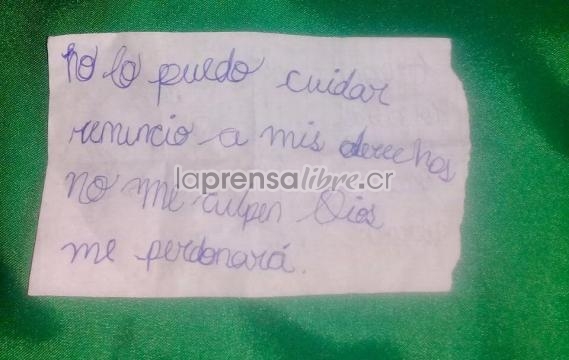 no lo puedo cuidar
renuncio a mis derechos
laprensalibre.cr
no me culpen Dios
me perdonará.